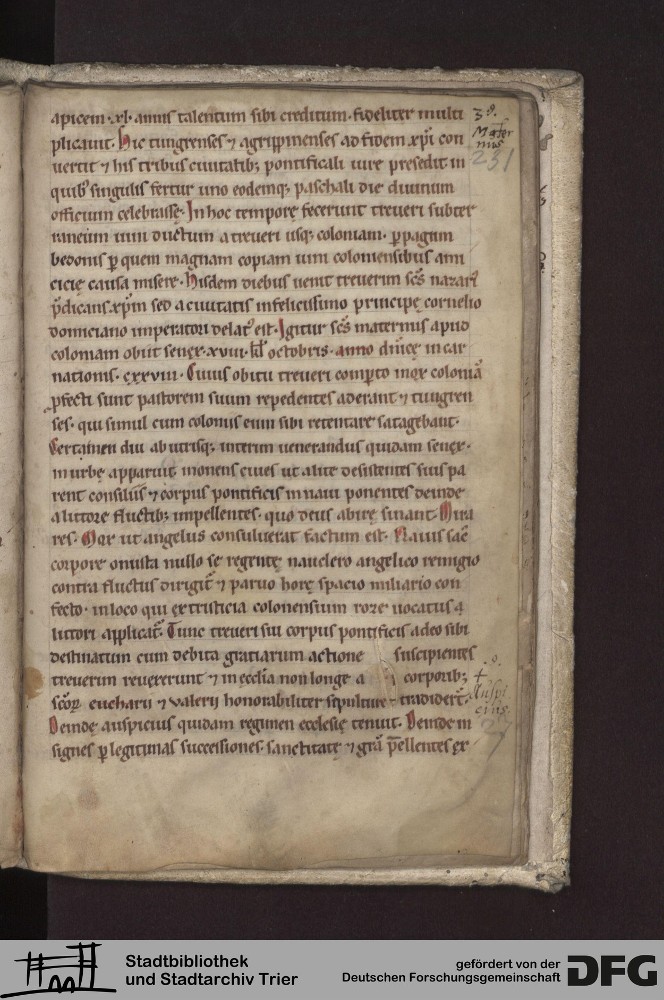 apicem · xl · annis talentum sibi creditum · fideliter multi
plicauit. Hic tungrenses ⁊ agrippinenses ad fidem xp̄i con
uertit ⁊ his tribus ciuitatib; pontificali iure presedit in
quib; singulis fertur uno eodemq; paschali die diuinum
officium celebrasse. In hoc tempore fecerunt treueri subter
raneum uini ductum a treueri usq; coloniam · p̱ pagum
bedonis p̱ quem magnam copiam uini coloniensibus ami
cicię causa misere. Hisdem diebus uenit treuerim sc̄s nazari᷒
p̄dicans xp̄m sed a ciuitatis infelicissimo principe cornelio
domiciano imperatori delat᷒ est. Igitur sc̄s maternus apud
coloniam obiit senex · xviii · kl̄ octobris · anno dn̄icę incar
nationis · cxxviii · Cuius obitu treueri comperto mox coloniā
p̱fecti sunt pastorem suum repedentes aderant ⁊ tungren
ses · qui simul cum colonis eum sibi retentare satagebant ·
Certamen diu ab utrisq; interim uenerandus quidam senex ·
in urbe apparuit monens ciues ut a lite desistentes suis pa
rent consiliis ⁊ corpus pontificis in naui ponentes deinde
a littore fluctib; impellentes · quo deus abire sinant. Mira
res. Mox ut angelus consuluerat factum est. Nauis sac̄
corpore onusta nullo se regente nauclero angelico remigio
contra fluctus dirigit᷑ ⁊ paruo horę spacio miliario con
fecto · in loco qui ex tristicia coloniensium rore uocatus
littori applicat᷑. Tunc treueri sui corpus pontificis a deo sibi
destinatum cum debita gratiarum actione suscipientes
treuerim reuexerunt ⁊ in ęcclia non longe a corporib;
sc̄oꝝ eucharii ⁊ valerii honorabiliter sepulture tradider̄t.
Deinde auspicius quidam regimen ecclesię tenuit. Deinde in
signes p̱ legitimas successiones · sanctitate ⁊ gr̄a p̄cellentes ex
3 9.
Mater
nus
231
Auspi
cius
Stadtbibliothek
und Stadtarchiv Trier
gefördert von der
Deutschen Forschungsgemeinschaft
DFG